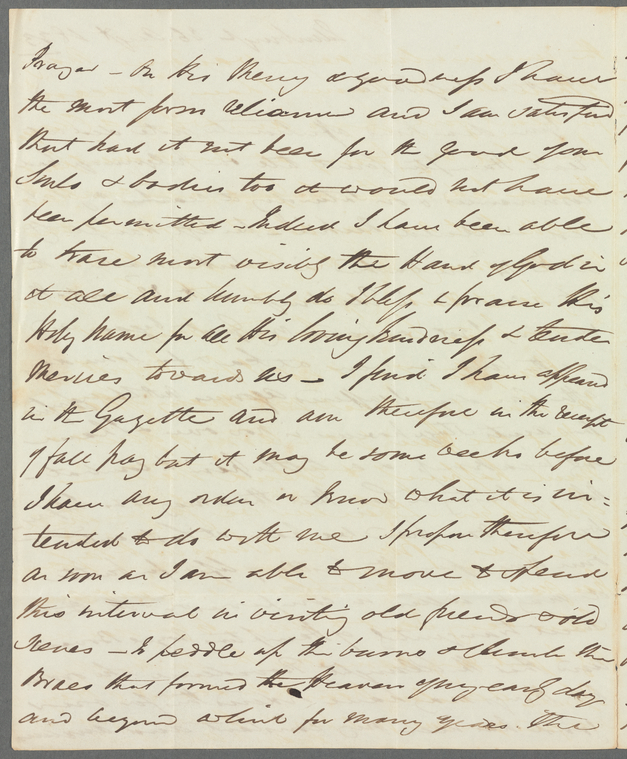 Prayer - On His Mercy & goodness I have
the most firm reliance and I am satisfied
that had it not been for the good of our
Souls & bodies too it would not have
been permitted - Indeed I have been able
to trace most visibly the Hand of God in
it all and humbly do I bless & praise His
Holy Name for all His loving kindness & tender
Mercies towards us - I find I have appeared
in the Gazette and am therefore in the receipt
of full pay but it may be some weeks before
I have any orders or know what it is in=
tended to do with me I propose therefore
as soon as I am able to move to spend
this interval in visiting old friends & old
scenes - To peddle up the burns & climb the
Braes that formed the Heaven of my early days
and beyond which for many years. The